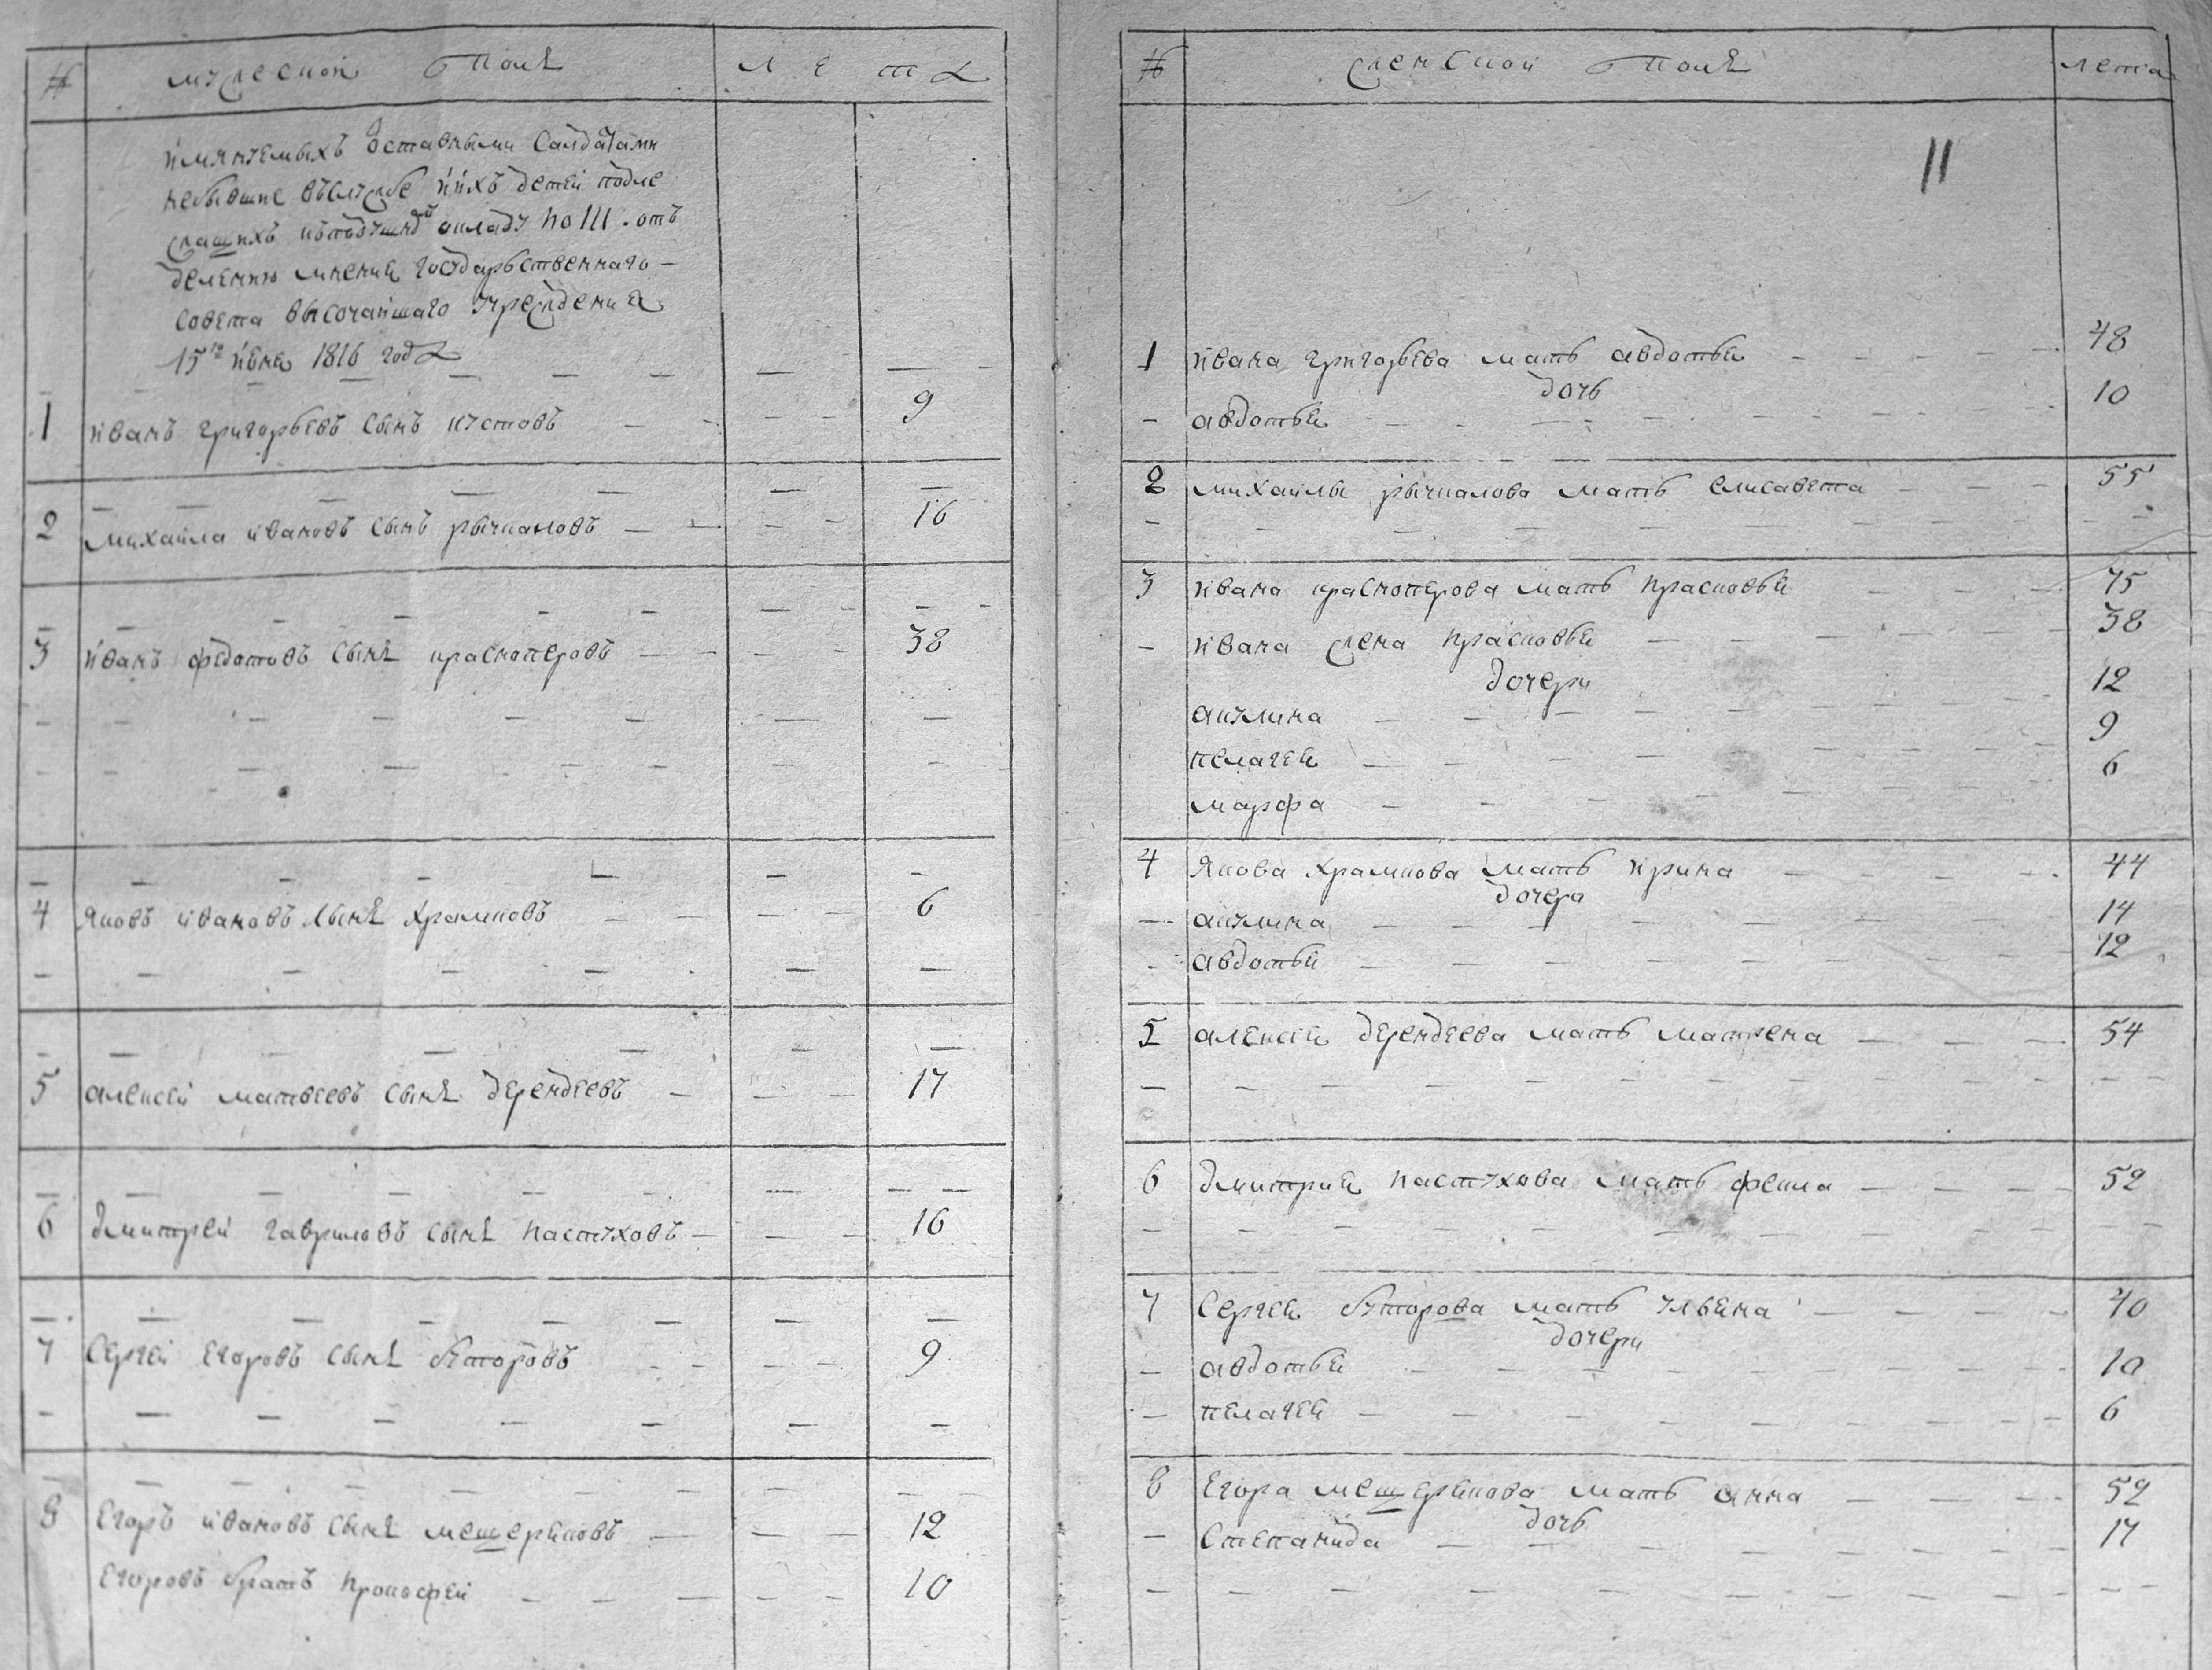 № мужескои полъ лета
имянуемыхъ оставными салдатами
небывшие въслужбе иихъ детей подле
жащихъ кподушному окладу по III. отъ
делению мнения государьственнаго
совета высочайшаго учреждения
15го июня 1816 года
1 иванъ григорьевъ сынъ кустовъ 9
2 михаила ивановъ сынъ рычкаловъ 16
3 иванъ федотовъ сынъ красноперовъ 38
4 яковъ ивановъ сынъ храмковъ 6
5 алексей матвеевъ сынъ дерендеевъ 17
6 дмитрей гавриловъ сынъ пастуховъ 16
7 Сергей Егоровъ сынъ буторовъ 9
8 Егоръ ивановъ сынъ мещеряковъ 12
Егоровъ братъ прокофей 10
№ женскои полъ лета
11
1 ивана григорьева мать авдотья 48
дочь
авдотья 10
2 михаилы рычкалова мать елисавета 55
3 ивана красноперова мать прасковья 75
ивана жена прасковья 38
дочери
акулина 12
пелагея 9
марфа 6
4 якова храмкова мать ирина 44
дочери
акулина 14
авдотья 12
5 алексея дерендеева мать матрена 54
6 дмитрия пастухова мать фекла 52
7 Сергея буторова мать ульяна 40
дочери
авдотья 10
пелагея 6
8 Егора мещерякова мать анна 52
дочь
Степанида 17